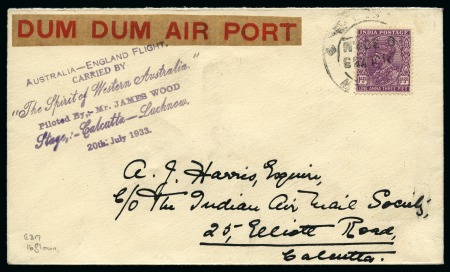 DUM DUM AIR PORT
AUSTRALIA-ENGLAND FLIGHT.
CARRIED BY
"The Spirit of Western Australia."
Piloted By,- Mr. JAMES WOOD
Stage,:- Calcutta - Lucknow.
20th July 1933.
INDIA POSTAGE
ONE ANNA THREE PIES
A. J. Harris, Esquire,
C/o The Indian Air Mail Society,
25, Elliott Road,
Calcutta.